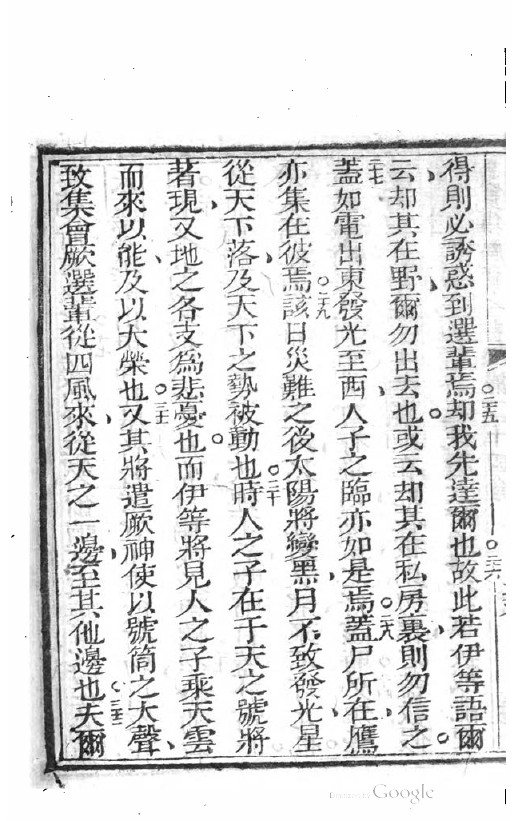 得則必誘惑到選輩焉却我先達爾也故此若伊等語爾
云却其在野爾勿出去也或云却其在私房裏則勿信之
蓋如電出東發光至西人子之臨亦如是焉蓋尸所在鷹
亦集在彼焉該日災難之後太陽將變黑月不致發光星
從天下落及天下之勢被動也時人之子在于天之號將
著現又地之各支為悲憂也而伊等將見人之子乘天雲
而來以能及以大榮也又其將遣厥神使以號筒之大聲
致集會厥選輩從四風來從天之一邊至其他邊也夫爾
Google